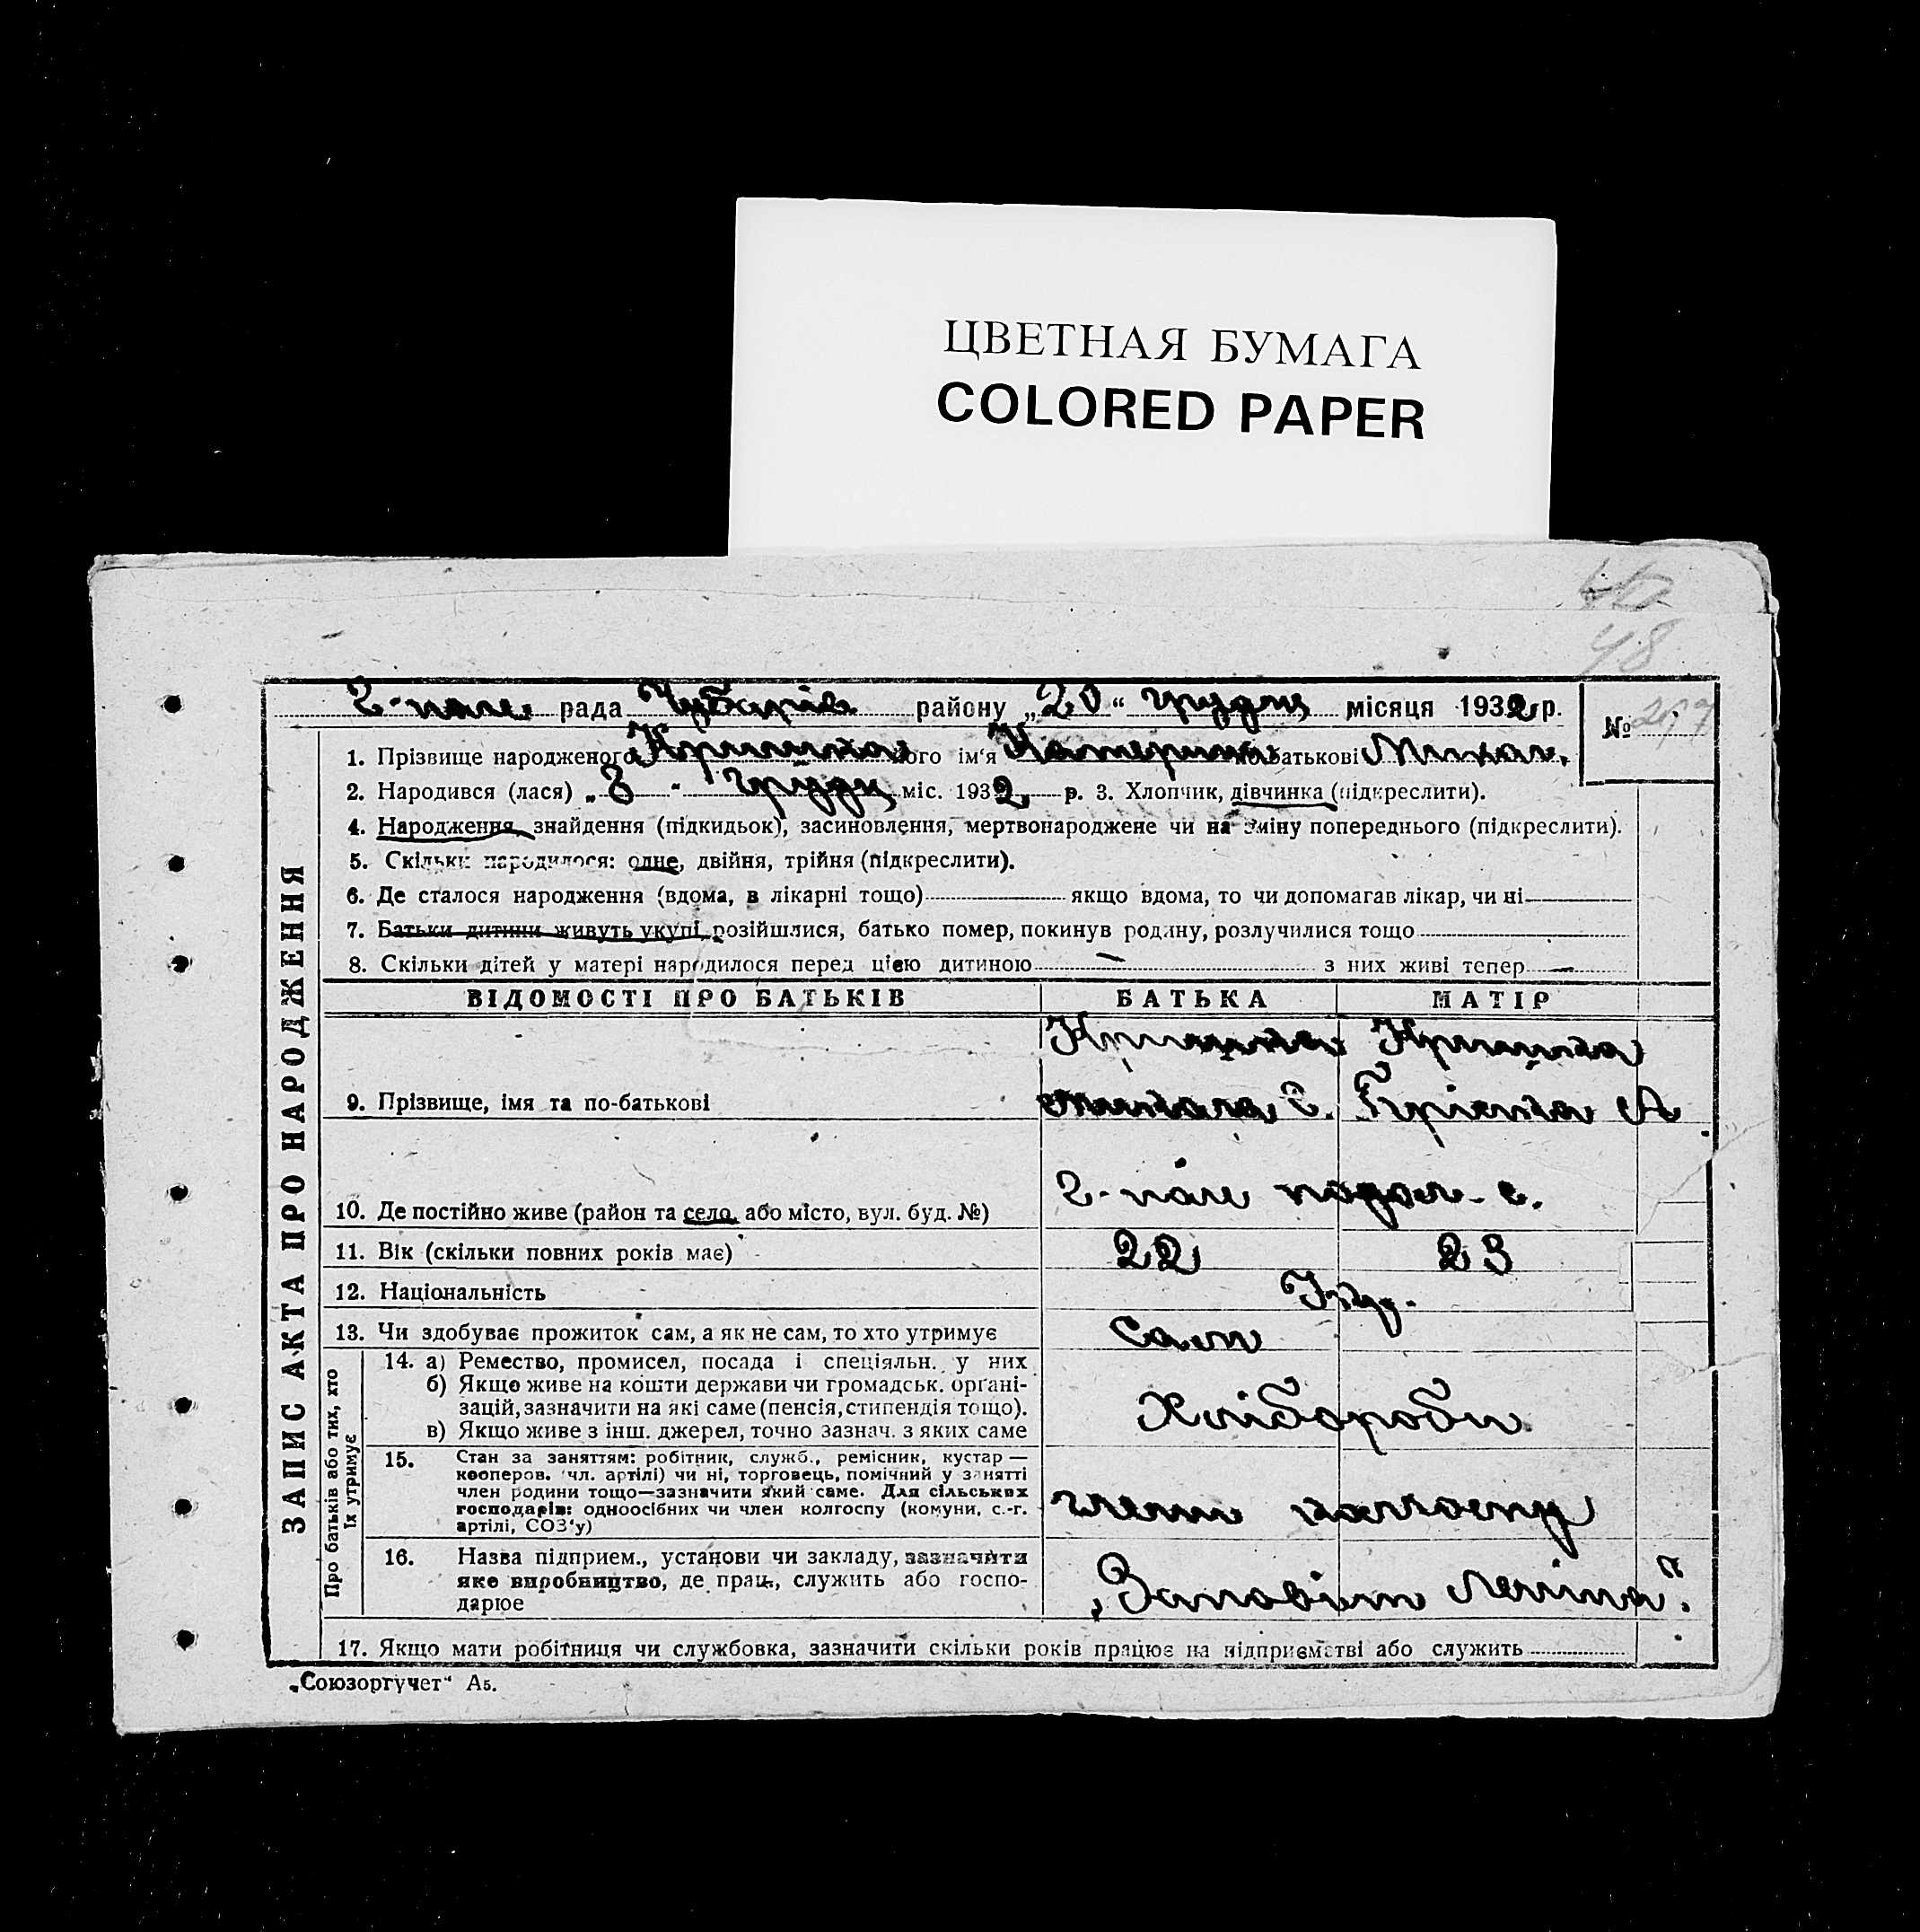 ЦВЕТНАЯ БУМАГА
COLORED PAPER
48
рада Чубарів району „20“ грудня місяця 1932 р.
№
1. Прізвище народженого його ім'я Катерина по батькові Михал.
2. Народився (лася) „8“ грудня міс. 1932 р. 3. Хлопчик, дівчинка (підкреслити).
4. Народження, знайдення (підкидьок), засиновлення, мертвонароджене чи на зміну попереднього (підкреслити).
5. Скільки народилося: одне, двійня, трійня (підкреслити).
6. Де сталося народження (вдома, в лікарні тощо) якщо вдома, то чи допомагав лікар, чи ні
7. Батьки дитини живуть укупі, розійшлися, батько помер, покинув родину, розлучилися тощо
8. Скільки дітей у матері народилося перед цією дитиною — з них живі тепер —
ЗАПИС АКТА ПРО НАРОДЖЕННЯ
ВІДОМОСТІ ПРО БАТЬКІВ БАТЬКА МАТІР
9. Прізвище, імя та по-батькові
10. Де постійно живе (район та село, або місто, вул. буд. №)
11. Вік (скільки повних років має) 22 23
12. Національність Укр.
13. Чи здобуває прожиток сам, а як не сам, то хто утримує Сам
Про батьків або тих, хто
їх утримує
14. а) Ремество, промисел, посада і спеціяльн. у них
б) Якщо живе на кошти держави чи громадськ. органі-
зацій, зазначити на які саме (пенсія, стипендія тощо).
в) Якщо живе з інш. джерел, точно зазнач. з яких саме
Хлібороби
15. Стан за заняттям: робітник, служб., ремісник, кустар —
кооперов. (чл. артілі) чи ні, торговець, помічний у занятті
член родини тощо—зазначити який саме. Для сільських
господарів: одноосібних чи член колгоспу (комуни, с.-г.
артілі, СОЗ'у)
члени колгоспу
16. Назва підприєм., установи чи закладу, зазначити
яке виробництво, де прац., служить або госпо-
дарює
„Заповіт Леніна“.
17. Якщо мати робітниця чи службовка, зазначити скільки років працює на підприємстві або служить
„Союзоргучет“ Аб.